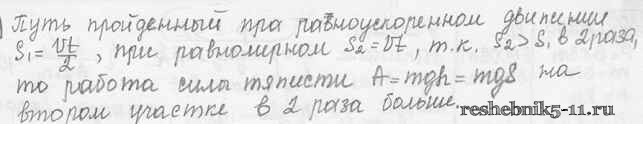 ) Путь пройденный при равноускоренном движении
S₁ = vt/2, при равномерном S₂ = vt, т.к. S₂ > S₁ в 2 раза,
то работа силы тяжести A = mgh = mgS на
втором участке в 2 раза больше.
reshebnik5-11.ru